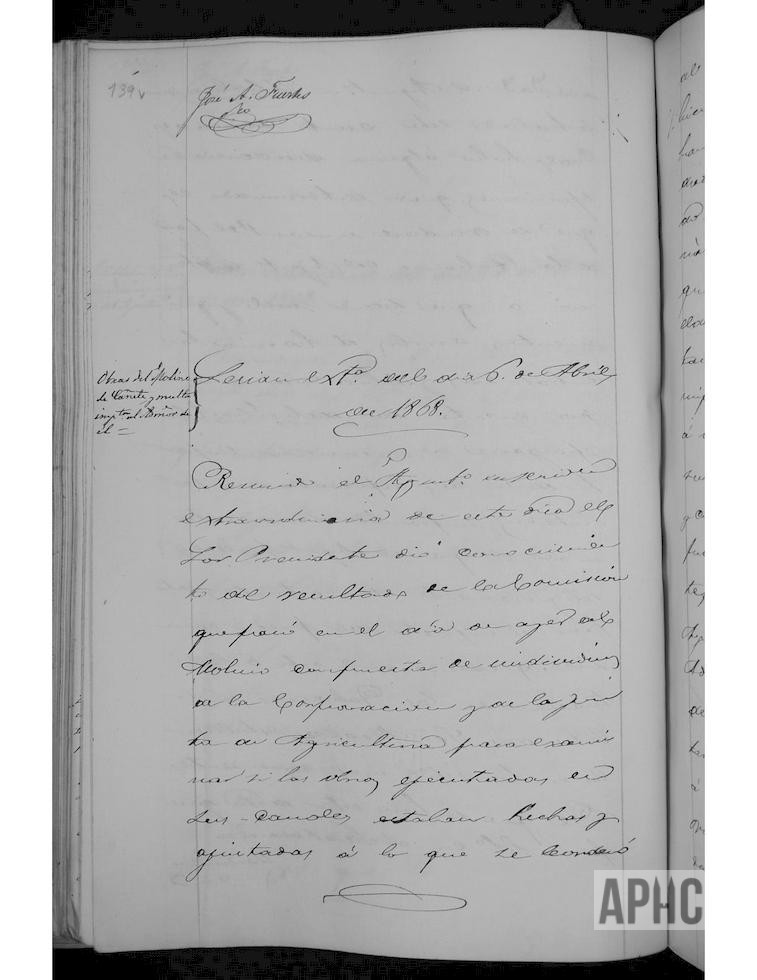 139v
José A. Fuertes
Srio
Obras del Molino
de Cañete y multa
impta. al Admor de
él =
Sesion extª. del dia 6. de Abril
de 1868.
Reunido el Ayuntº. en sesion
extraordinaria de este dia el
Sor Presidente dió conocimien
to del resultado de la Comision
que pasó en el dia de ayer al
Molino compuesta de individuos
de la Corporacion y de la Jun
ta de Agricultura para exami
nar si las obras ejecutadas en
sus canales estaban hechas y
ajustadas á lo que se
APHC